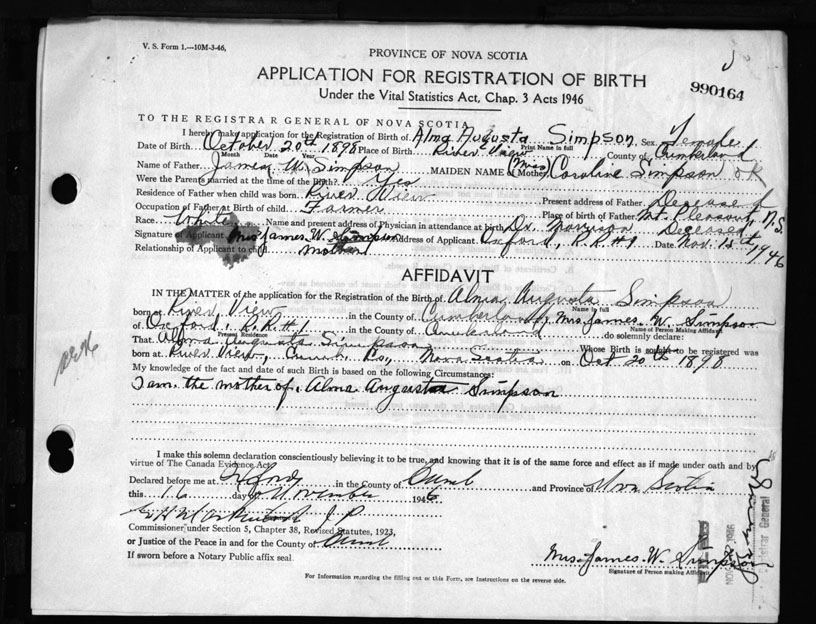 V. S. Form 1.—10M-3-46,
PROVINCE OF NOVA SCOTIA
990164
APPLICATION FOR REGISTRATION OF BIRTH
Under the Vital Statistics Act, Chap. 3 Acts 1946
TO THE REGISTRAR GENERAL OF NOVA SCOTIA
I hereby make application for the Registration of Birth of Alma Augusta Simpson Sex Female
Print Name in full
Date of Birth October 20th 1898 Place of Birth River View County of Cumberland
Month Date Year
Name of Father James W. Simpson MAIDEN NAME of Mother (Mrs) Caroline Simpson
Were the Parents married at the time of the Birth? Yes
Residence of Father when child was born River View Present address of Father Deceased
Occupation of Father at Birth of child Farmer Place of birth of Father Mt. Pleasant, N.S.
Race White Name and present address of Physician in attendance at birth Dr. Morrison Deceased
Signature of Applicant Mrs James W. Simpson Address of Applicant Oxford, R.R#1 Date Nov. 15th 1946
Relationship of Applicant to child mother
AFFIDAVIT
IN THE MATTER of the application for the Registration of the Birth of Alma Augusta Simpson
Name in full
born at River View in the County of Cumberland, Mrs. James. W. Simpson
Name of Person Making Affidavit
of Oxford, R.R.#1 in the County of Cumberland do solemnly declare:
Present Residence
That Alma Augusta Simpson Whose Birth is sought to be registered was
born at River View, Co., Nova Scotia on Oct 20th 1898
My knowledge of the fact and date of such Birth is based on the following Circumstances:
I am the mother of. Alma Augusta Simpson
I make this solemn declaration conscientiously believing it to be true, and knowing that it is of the same force and effect as if made under oath and by
virtue of The Canada Evidence Act.
Declared before me at Oxford in the County of Cumb and Province of Nova Scotia
this 16 day of November 1946
J.P.
Commissioner under Section 5, Chapter 38, Revised Statutes, 1923,
or Justice of the Peace in and for the County of Cumb
If sworn before a Notary Public affix seal.
Mrs. James. W. Simpson
Signature of Person making Affidavit
For Information regarding the filling out of this Form, see Instructions on the reverse side.
Registrar General